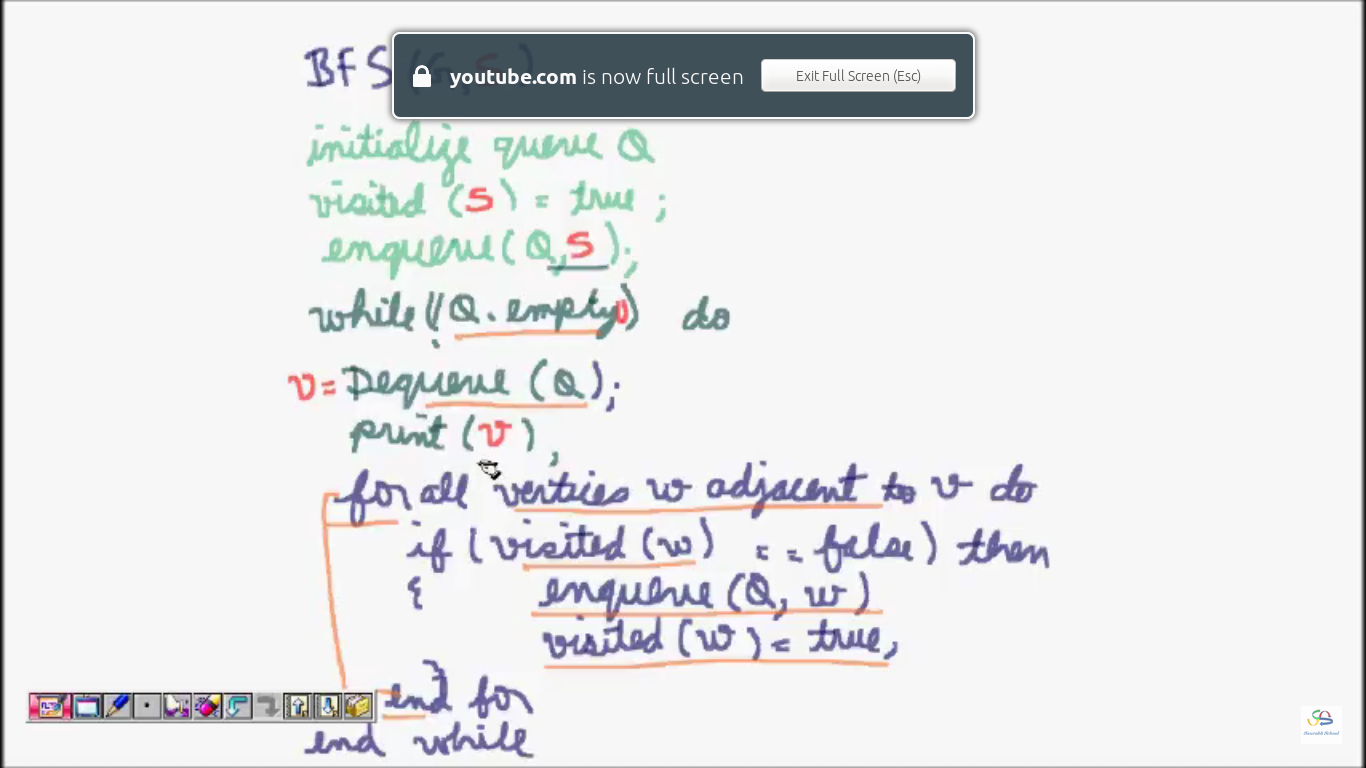 BFS (G, S)
youtube.com is now full screen
Exit Full Screen (Esc)
initialize queue Q
visited (S) = true ;
enqueue( Q,S );
while(! Q.empty()) do
v = Dequeue (Q);
print (v) ;
for all vertices w adjacent to v do
if (visited (w) == false) then
{ enqueue (Q, w)
visited (w) = true,
}
end for
end while